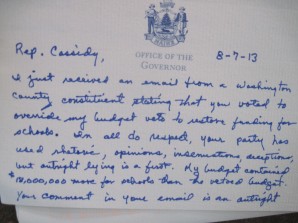 MAINE
OFFICE OF THE
GOVERNOR
8-7-13
Rep. Cassidy,
I just received an email from a Washington
County constituent stating that you voted to
override my budget veto to restore funding for
schools. In all do respect, your party has
used rhetoric, opinions, insenuations, exceptions,
but outright lying is a first. My budget contained
$10,000,000 more for schools than the vetoed budget.
Your comment in your email is an outright